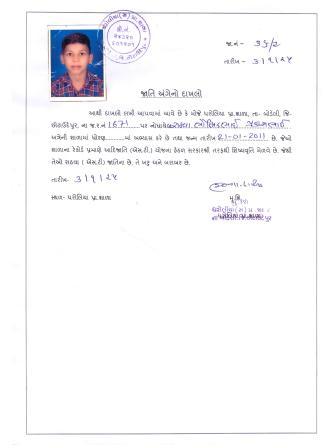 જા.નં- ૩૬/2
તારીખ- ૩/૧/૨૫
જાતિ અંગેનો દાખલો
આથી દાખલો લખી આપવામાં આવે છે કે મોજે પરોલિયા પ્રા.શાળા, તા- બોડેલી, જિ-
છોટાઉદેપુર. ના જ.ર.નં 1671 પર નોંધાયેલ
અત્રેની શાળામાં ધોરણ ........માં અભ્યાસ કરે છે તથા જન્મ તારીખ 21-01-2011 છે. જેઓ
શાળાના રેકોર્ડ પ્રમાણે આદિજાતિ (એસ.ટી.) યોજના હેઠળ સરકારશ્રી તરફથી શિષ્યવૃત્તિ મેળવે છે. જેથી
તેઓ સદરહુ ( એસ.ટી.) જાતિના છે. તે ખરૂં અને બરાબર છે.
તારીખ- ૩/૧/૨૫
સ્થળ- પરોલિયા પ્રા.શાળા